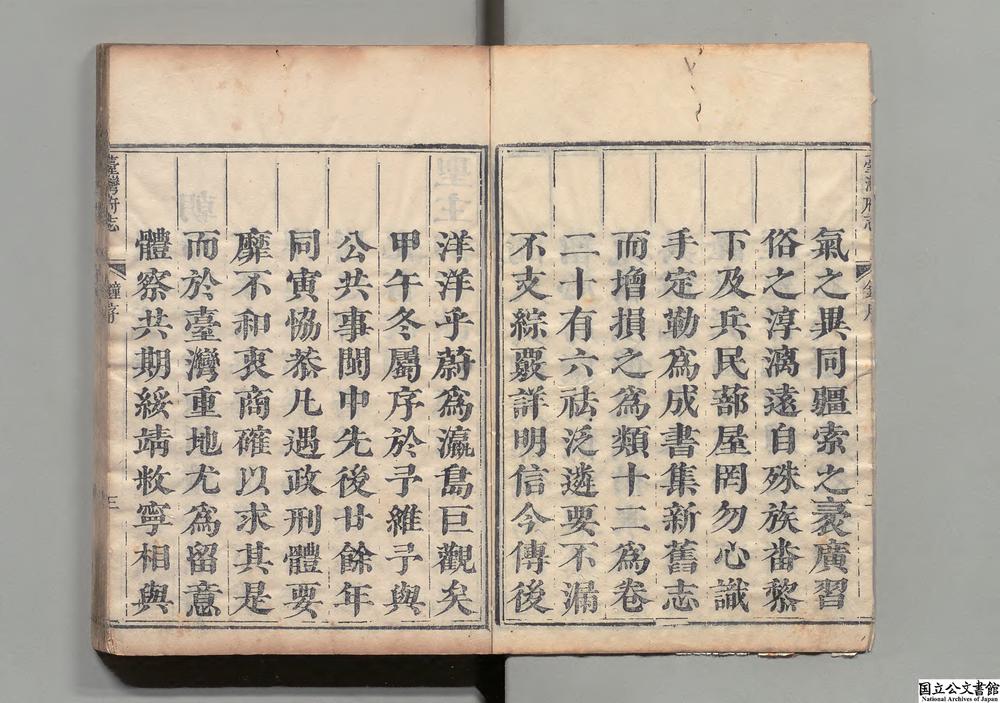 氣之異同疆索之袤廣習
俗之淳漓遠自殊族畨黎
下及兵民蔀屋罔勿心識
手定勒為成書集新舊志
而增損之為類十二為卷
二十有六祛泛遴要不漏
不支綜覈詳明信今傳後
洋洋乎蔚為瀛島巨觀矣
甲午冬屬序於予維予與
公共事閩中先後廿餘年
同寅恊恭凡遇政刑體要
靡不和衷商確以求其是
而於臺灣重地尤為留意
體察共期綏靖牧寧相與
臺灣府志
鐘序
三
国立公文書館
National Archives of Japan